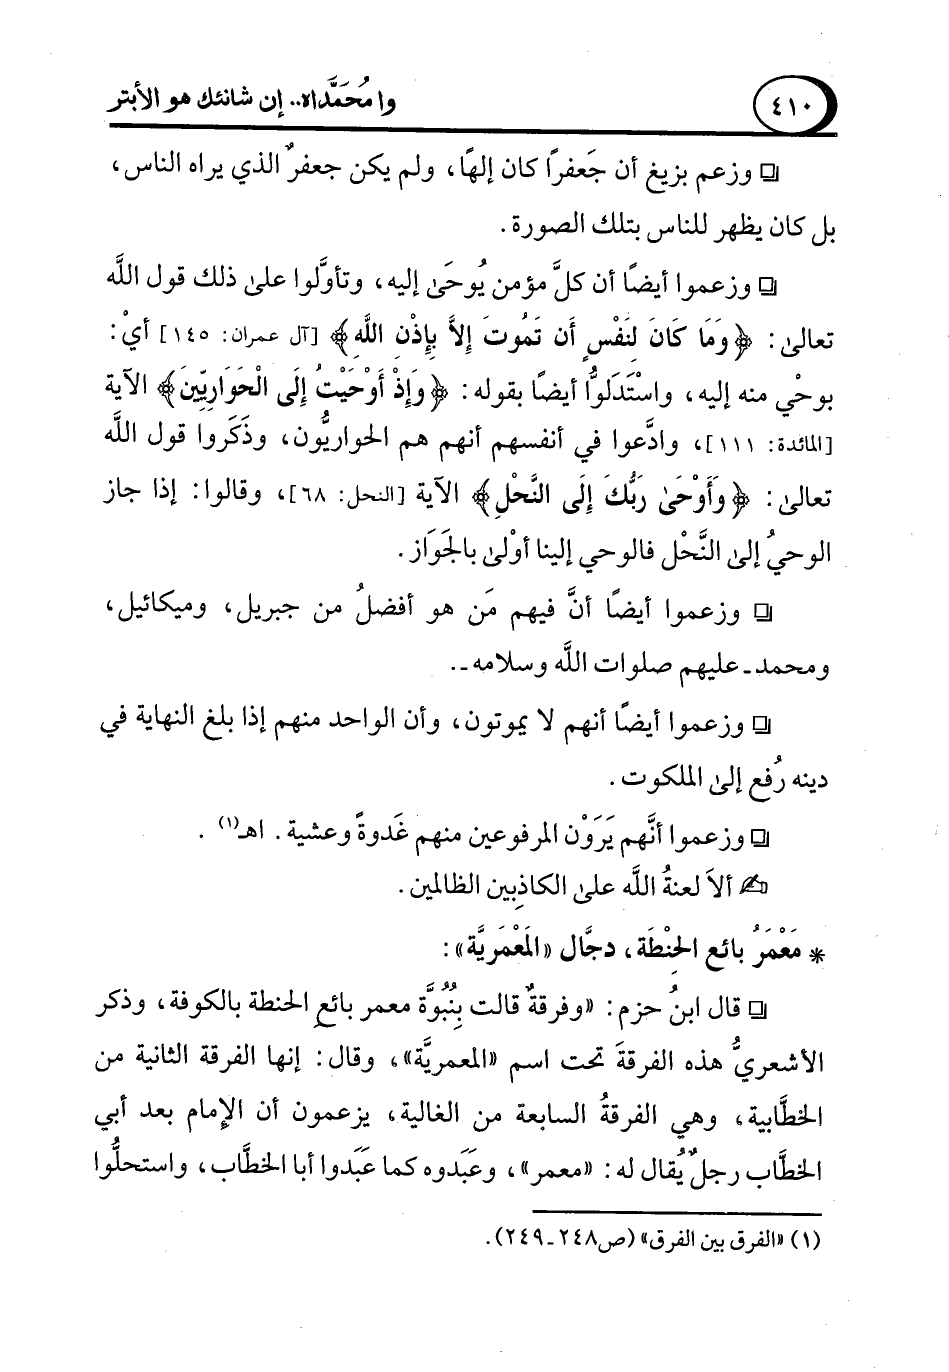 ٤١٠
وا مُحَمَّداه.. إن شانئك هو الأبتر
❏ وزعم بزيغ أن جَعفرًا كان إلهًا، ولم يكن جعفرٌ الذي يراه الناس،
بل كان يظهر للناس بتلك الصورة.
❏ وزعموا أيضًا أن كلَّ مؤمن يُوحَىٰ إليه، وتأوَّلوا علىٰ ذلك قول اللَّه
تعالىٰ: ﴿وَمَا كَانَ لِنَفْسٍ أَن تَمُوتَ إِلاَّ بِإِذْنِ اللَّهِ﴾ [آل عمران: ١٤٥] أيْ:
بوحْي منه إليه، واسْتَدَلوُّا أيضًا بقوله: ﴿وَإِذْ أَوْحَيْتُ إِلَى الْحَوَارِيِّينَ﴾ الآية
[المائدة: ١١١]، وادَّعوا في أنفسهم أنهم هم الحواريُّون، وذَكَروا قول اللَّه
تعالىٰ: ﴿وَأَوْحَىٰ رَبُّكَ إِلَى النَّحْلِ﴾ الآية [النحل: ٦٨]، وقالوا: إذا جاز
الوحيُ إلىٰ النَّحْل فالوحي إلينا أوْلىٰ بالجَوَاز.
❏ وزعموا أيضًا أنَّ فيهم مَن هو أفضلُ من جبريل، وميكائيل،
ومحمد ـ عليهم صلوات اللَّه وسلامه ـ.
❏ وزعموا أيضًا أنهم لا يموتون، وأن الواحد منهم إذا بلغ النهاية في
دينه رُفع إلىٰ الملكوت.
❏ وزعموا أنَّهم يَرَوْن المرفوعين منهم غَدوةً وعشية. اهـ(١).
✍ ألاَ لعنةُ اللَّه علىٰ الكاذبين الظالمين.
* مَعْمَرُ بائع الحِنْطَة، دجَّال «المَعْمَريَّة»:
❏ قال ابنُ حزم: «وفرقةٌ قالت بِنُبُوَّة معمر بائعِ الحنطة بالكوفة، وذكر
الأشعريُّ هذه الفرقةَ تحت اسم «المعمريَّة»، وقال: إنها الفرقة الثانية من
الخطَّابية، وهي الفرقةُ السابعة من الغالية، يزعمون أن الإمام بعد أبي
الخطَّاب رجلٌ يُقال له: «معمر»، وعَبَدوه كما عَبَدوا أبا الخطَّاب، واستحلُّوا
(١) «الفرق بين الفرق» (ص٢٤٨ ـ ٢٤٩).